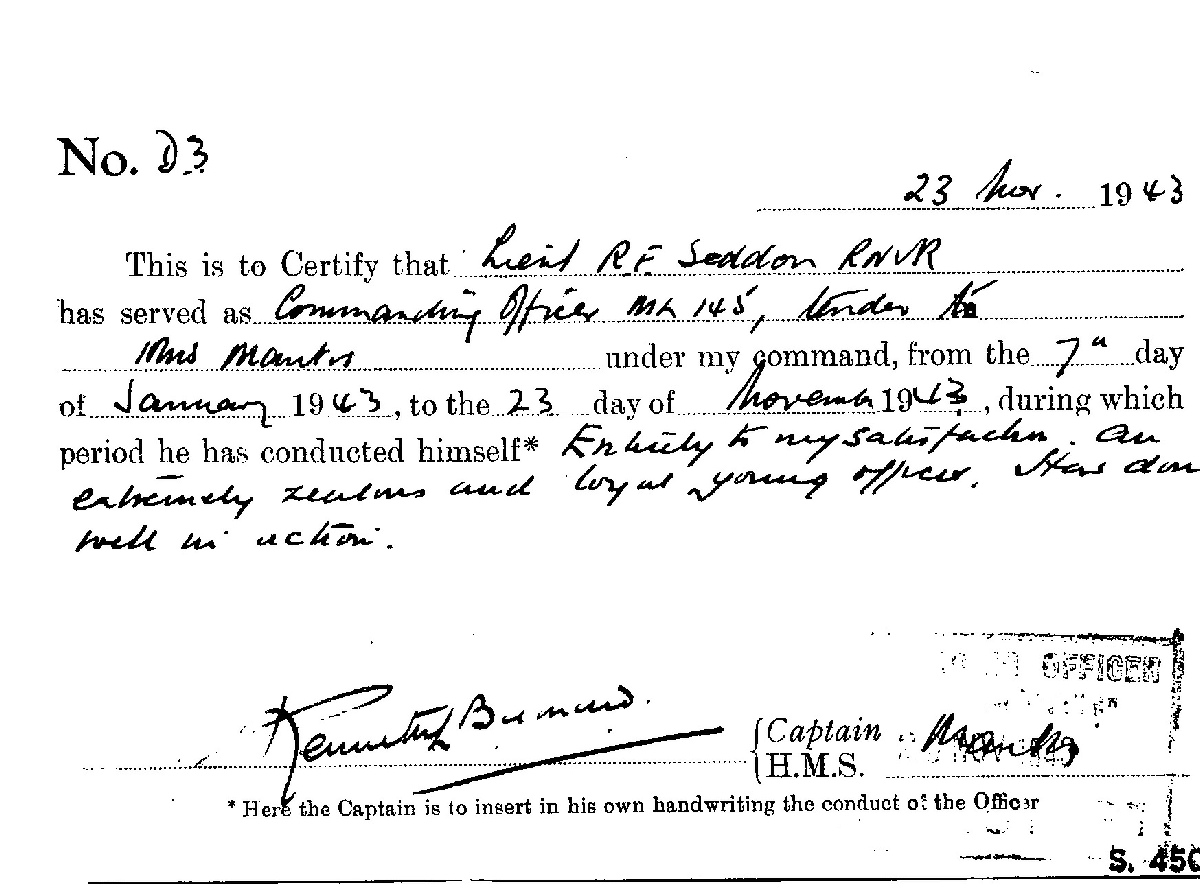 No. D3
23 Nov. 1943
This is to Certify that Lieut R.F. Seddon RNVR
has served as Commanding Officer ML 145, tender to
HMS Mantis under my command, from the 7th day
of January 1943, to the 23 day of November 1943, during which
period he has conducted himself* Entirely to my satisfaction. An
extremely zealous and loyal young officer. Has don
well in action.
Kenneth Barnard. {Captain Mantis
{H.M.S.
* Here the Captain is to insert in his own handwriting the conduct of the Officer
OFFICER
S. 450